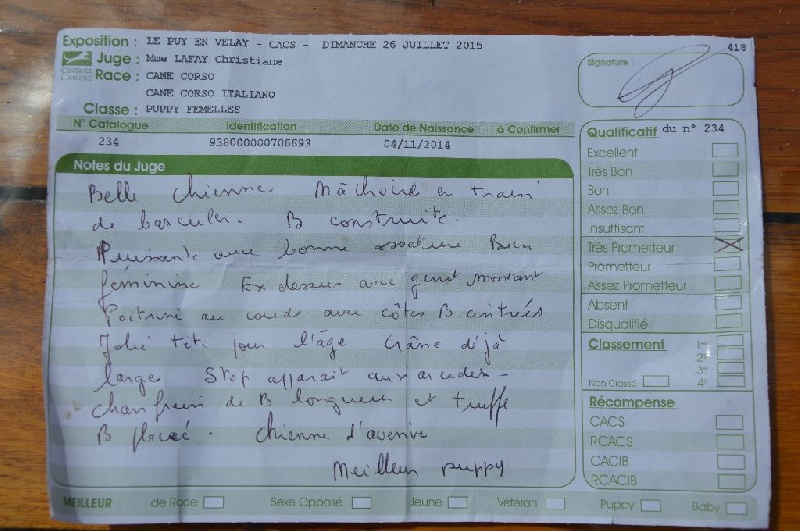 Exposition : LE PUY EN VELAY - CACS - DIMANCHE 26 JUILLET 2015
418
Juge : Mme LAFAY Christiane
CENTRALE CANINE
Race : CANE CORSO
CANE CORSO ITALIANO
Classe : PUPPY FEMELLES
Signature :
N° Catalogue Identification Date de Naissance à Confirmer
234 938000000706693 04/11/2014
Notes du Juge
Belle chienne Mâchoire en train
de basculer. B construite.
Puissante avec bonne ossature Bien
féminine Ex dessus avec garrot montant
Poitrine au coude avec côtes B cintrées
Jolie tête pour l'âge Crâne déjà
large Stop apparait aux arcades -
chanfrein de B longueur et truffe
B placée. chienne d'avenir
Meilleur puppy
Qualificatif du n° 234
Excellent
Très Bon
Bon
Assez Bon
Insuffisant
Très Prometteur X
Prometteur
Assez Prometteur
Absent
Disqualifié
Classement 1er
2e
3e
Non Classé 4e
Récompense
CACS
RCACS
CACIB
RCACIB
MEILLEUR : de Race Sexe Opposé Jeune Veteran Puppy Baby